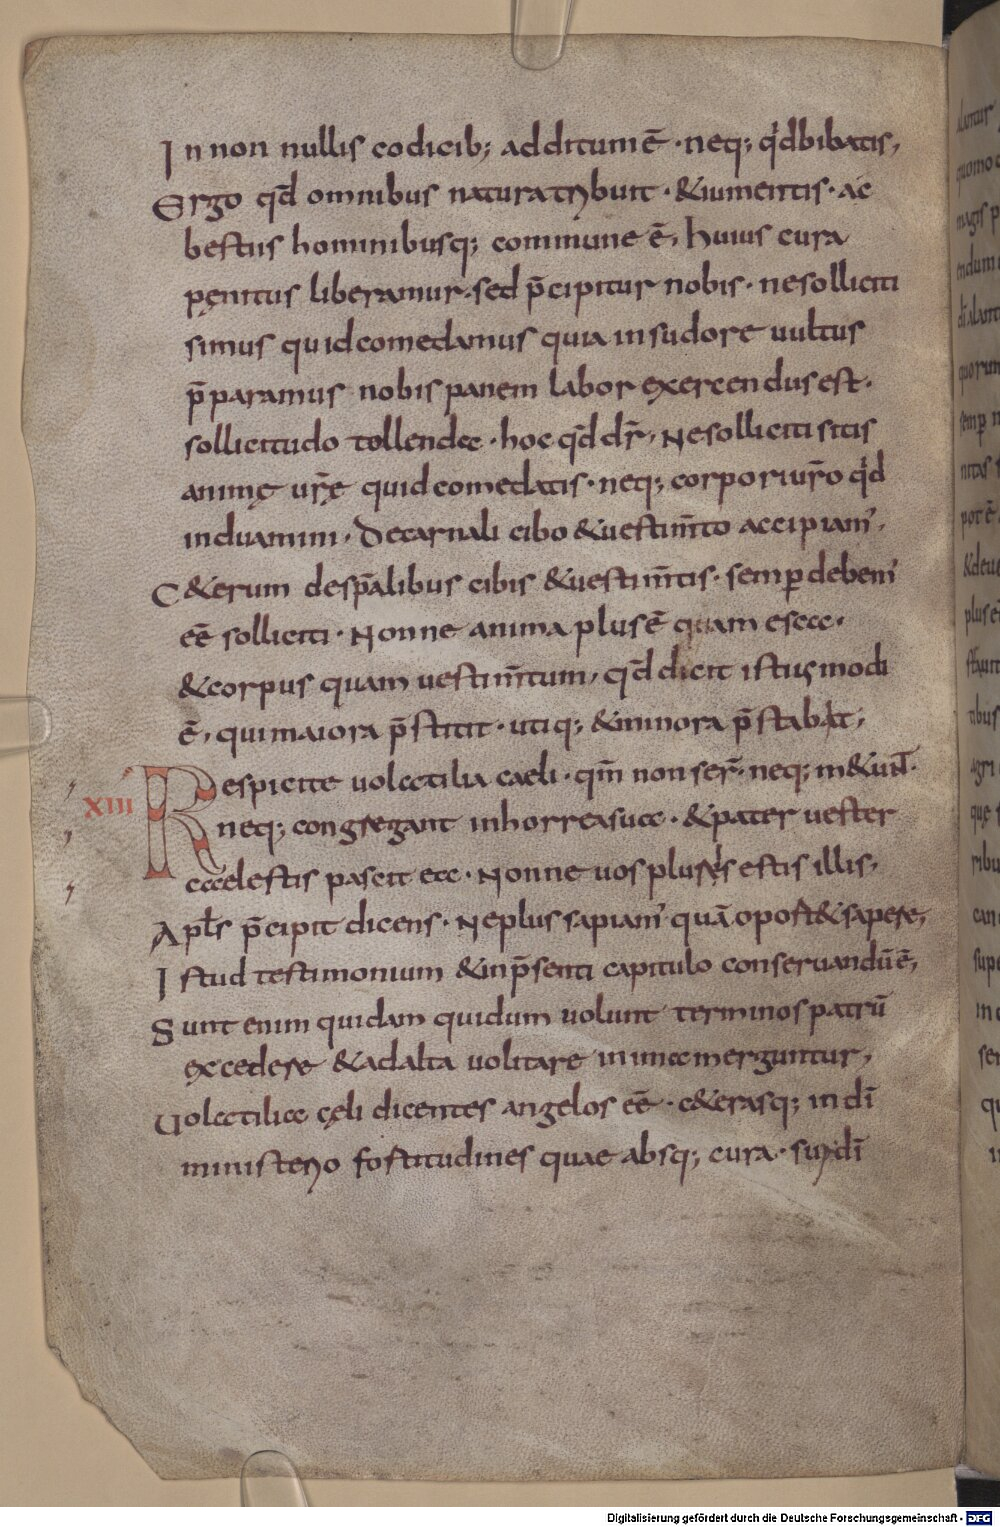 In non nullis codicib; additum ē · neq; qd bibatis,
Ergo qđ omnibus natura tribuit · & iumentis · ac
bestiis hominibusq; commune ē, huius cura
pęnitus liberamur · sed p̄cipitur nobis · ne solliciti
simus quid comedamus quia in sudore uultus
p̄paramus nobis panem labor exercendus est ·
sollicitudo tollenda · hoc qđ dr̄, Ne solliciti sitis
animę ur̄ę quid comedatis · neq; corpori ur̄o qd
induamini · De carnali cibo & uestim̄to accipiam',
C&erum de sp̄alibus cibis & uestim̄tis · semꝑ debem'
eē solliciti · Nonne anima plus ē quam esca ·
& corpus quam uestim̄tum, qđ dicit istius modi
ē, qui maiora p̄stitit · utiq; & minora p̄stabit,
XIII Respicite uolatilia caeli · qm̄ non ser̄ · neq; m&unt̄ ·
neq; congregant in horrea sua · & pater uester
caelestis pascit ea · Nonne uos pluris estis illis,
Apłs p̄cipit dicens · Ne plus sapiam' quā oport& sapere,
Istud testimonium & in p̄senti capitulo conseruandū ē,
Sunt enim quidam qui dum uolunt terminos patrū
excedere & ad alta uolitare in ima merguntur,
Uolatilia cęli dicentes angelos eē · c&erasq; in dī
ministerio fortitudines quae absq; cura · sui dī
Digitalisierung gefördert durch die Deutsche Forschungsgemeinschaft - DFG